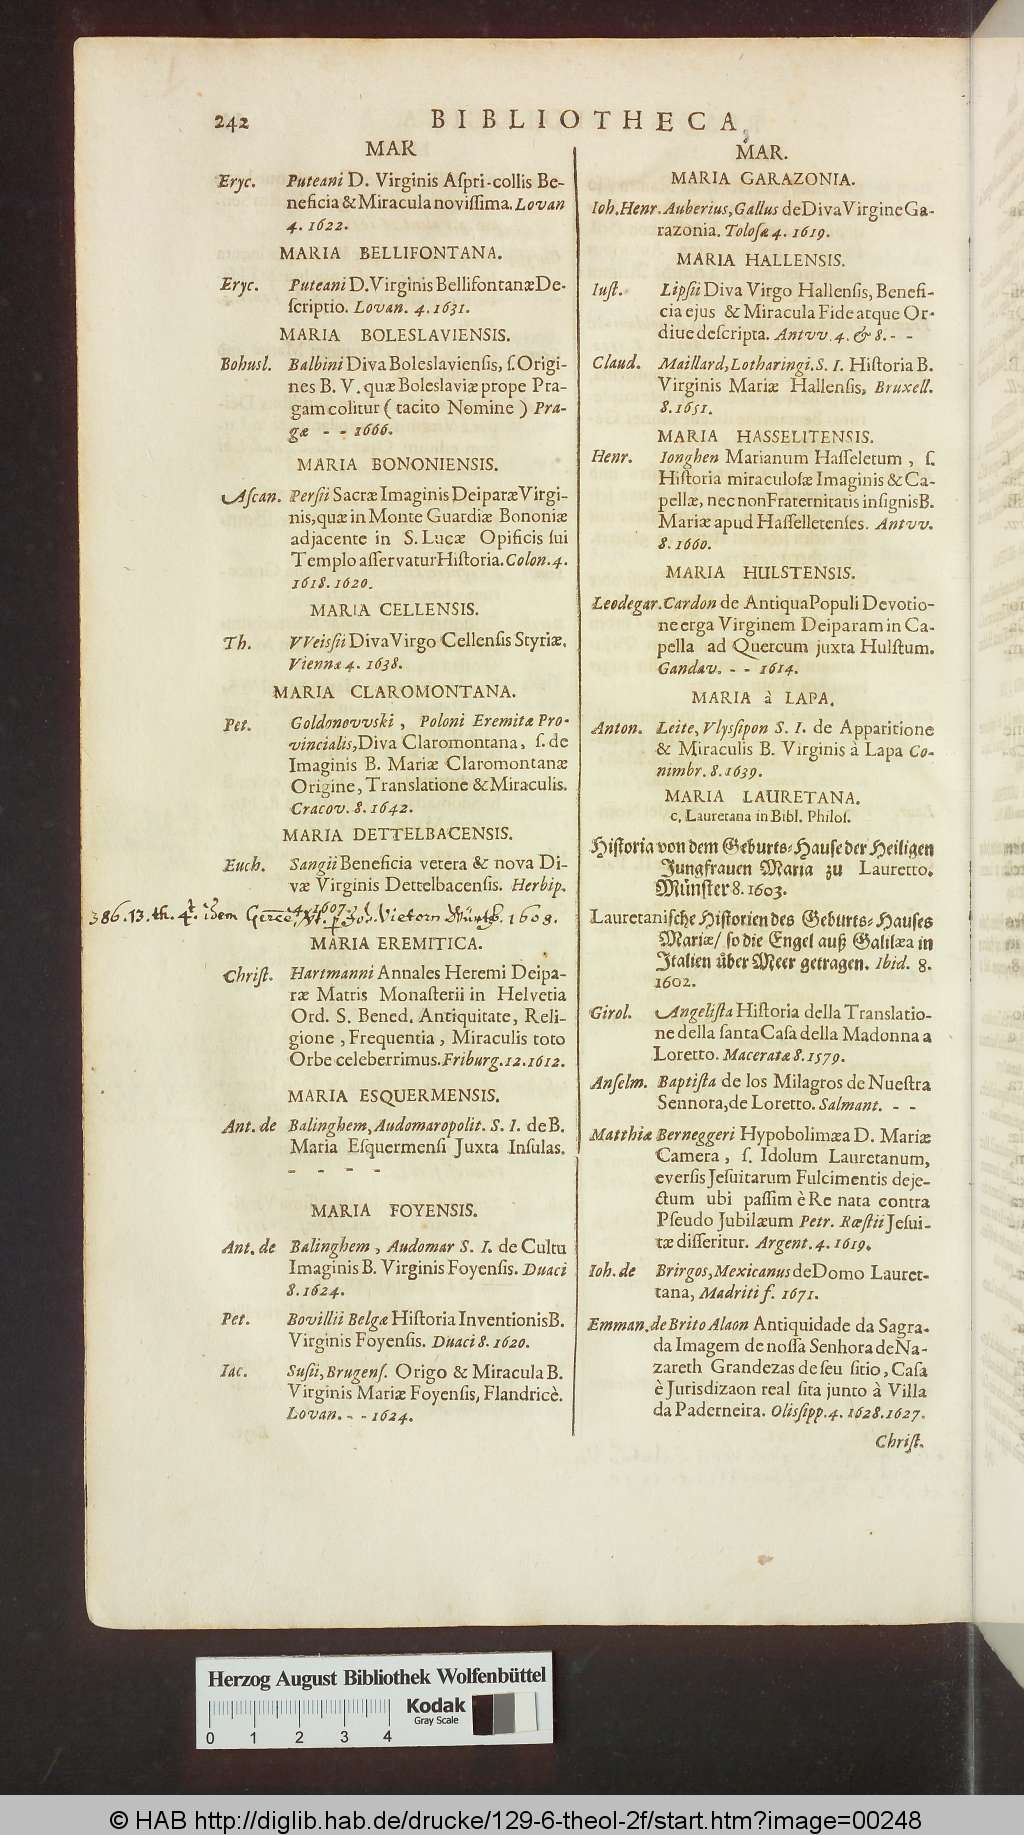 242 BIBLIOTHECA
MAR
Eryc. Puteani D. Virginis Aſpri-collis Be-
neficia & Miracula noviſſima. Lovan
4. 1622.
MARIA BELLIFONTANA.
Eryc. Puteani D. Virginis Bellifontanæ De-
ſcriptio. Lovan. 4. 1631.
MARIA BOLESLAVIENSIS.
Bohusl. Balbini Diva Boleslaviensis, ſ. Origi-
nes B. V. quæ Boleslaviæ prope Pra-
gam colitur ( tacito Nomine ) Pra-
gæ - - 1666.
MARIA BONONIENSIS.
Aſcan. Perſii Sacræ Imaginis Deiparæ Virgi-
nis, quæ in Monte Guardiæ Bononiæ
adjacente in S. Lucæ Opificis ſui
Templo aſſervatur Hiſtoria. Colon. 4.
1618. 1620.
MARIA CELLENSIS.
Th. VVeiſſii Diva Virgo Cellenſis Styriæ.
Viennæ 4. 1638.
MARIA CLAROMONTANA.
Pet. Goldonovvski, Poloni Eremitæ Pro-
vincialis, Diva Claromontana, ſ. de
Imaginis B. Mariæ Claromontanæ
Origine, Translatione & Miraculis.
Cracov. 8. 1642.
MARIA DETTELBACENSIS.
Euch. Sangii Beneficia vetera & nova Di-
væ Virginis Dettelbacensis. Herbip.
4. 1607.
386. 13. th. 4t. 1608.
MARIA EREMITICA.
Chriſt. Hartmanni Annales Heremi Deipa-
ræ Matris Monaſterii in Helvetia
Ord. S. Bened. Antiquitate, Reli-
gione, Frequentia, Miraculis toto
Orbe celeberrimus. Friburg. 12. 1612.
MARIA ESQUERMENSIS.
Ant. de Balinghem, Audomaropolit. S. I. de B.
Maria Eſquermenſi Juxta Inſulas.
- - - -
MARIA FOYENSIS.
Ant. de Balinghem, Audomar S. I. de Cultu
Imaginis B. Virginis Foyenſis. Duaci
8. 1624.
Pet. Bovillii Belgæ Hiſtoria Inventionis B.
Virginis Foyenſis. Duaci 8. 1620.
Iac. Suſii, Brugenſ. Origo & Miracula B.
Virginis Mariæ Foyenſis, Flandricè.
Lovan. - - 1624.
MAR.
MARIA GARAZONIA.
Ioh. Henr. Auberius, Gallus de Diva Virgine Ga-
razonia. Toloſæ 4. 1619.
MARIA HALLENSIS.
Iuſt. Lipſii Diva Virgo Hallenſis, Benefi-
cia ejus & Miracula Fide atque Or-
dive deſcripta. Antvv. 4. & 8. - -
Claud. Maillard, Lotharingi. S. I. Hiſtoria B.
Virginis Mariæ Hallenſis, Bruxell.
8. 1651.
MARIA HASSELITENSIS.
Henr. Ionghen Marianum Haſſeletum, ſ.
Hiſtoria miraculoſæ Imaginis & Ca-
pellæ, nec non Fraternitatis inſignis B.
Mariæ apud Haſſelletenſes. Antvv.
8. 1660.
MARIA HULSTENSIS.
Leodegar. Cardon de Antiqua Populi Devotio-
ne erga Virginem Deiparam in Ca-
pella ad Quercum juxta Hulſtum.
Gandav. - - 1614.
MARIA à LAPA.
Anton. Leite, Vlyſſipon S. I. de Apparitione
& Miraculis B. Virginis à Lapa Co-
nimbr. 8. 1639.
MARIA LAURETANA.
c. Lauretana in Bibl. Philoſ.
Hiſtoria von dem Geburts-Hauſe der Heiligen
Jungfrauen Maria zu Lauretto.
Münſter 8. 1603.
Lauretaniſche Hiſtorien des Geburts-Hauſes
Mariæ/ ſo die Engel auß Galilæa in
Italien über Meer getragen. Ibid. 8.
1602.
Girol. Angeliſta Hiſtoria della Translatio-
ne della ſanta Caſa della Madonna a
Loretto. Maceratæ 8. 1579.
Anſelm. Baptiſta de los Milagros de Nueſtra
Sennora, de Loretto. Salmant. - -
Matthiæ Berneggeri Hypobolimæa D. Mariæ
Camera, ſ. Idolum Lauretanum,
everſis Jeſuitarum Fulcimentis deje-
ctum ubi paſſim è Re nata contra
Pſeudo Jubilæum Petr. Ræſtii Jeſui-
tæ diſſeritur. Argent. 4. 1619.
Ioh. de Brirgos, Mexicanus de Domo Lauret-
tana, Madriti f. 1671.
Emman. de Brito Alaon Antiquidade da Sagra-
da Imagem de noſſa Senhora de Na-
zareth Grandezas de ſeu ſitio, Caſa
è Jurisdizaon real ſita junto à Villa
da Paderneira. Olisſipp. 4. 1628. 1627.
Chriſt.
Herzog August Bibliothek Wolfenbüttel
Kodak
Gray Scale
0 1 2 3 4
© HAB http://diglib.hab.de/drucke/129-6-theol-2f/start.htm?image=00248